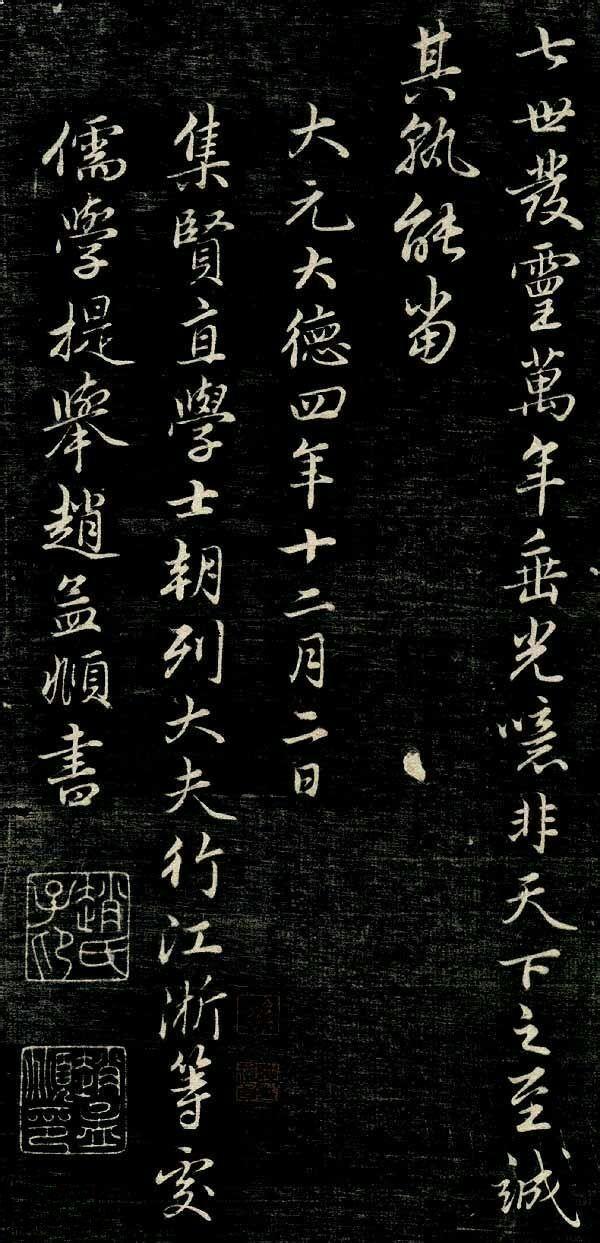 七世發靈萬年垂光噫非天下之至誠
其孰能當
大元大德四年十二月二日
集賢直學士朝列大夫行江浙等處
儒學提舉趙孟頫書
趙氏子印
趙孟頫印